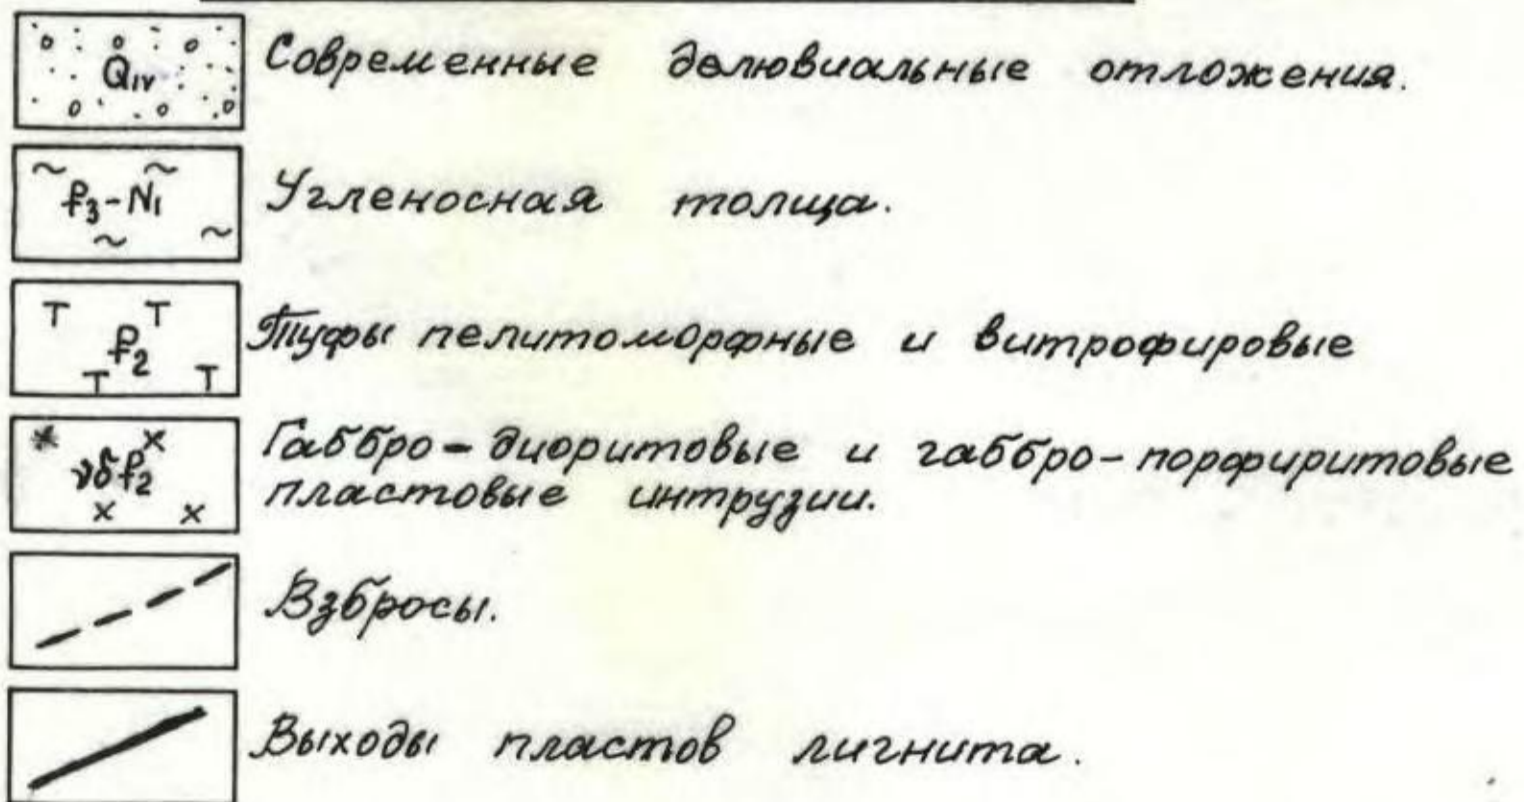 Qıv Современные делювиальные отложения.
₽₃-N₁ Угленосная толща.
Т Т ₽₂ Т Т Туфы пелитоморфные и витрофировые
νδ₽₂ Габбро-диоритовые и габбро-порфиритовые
пластовые интрузии.
Взбросы.
Выходы пластов лигнита.